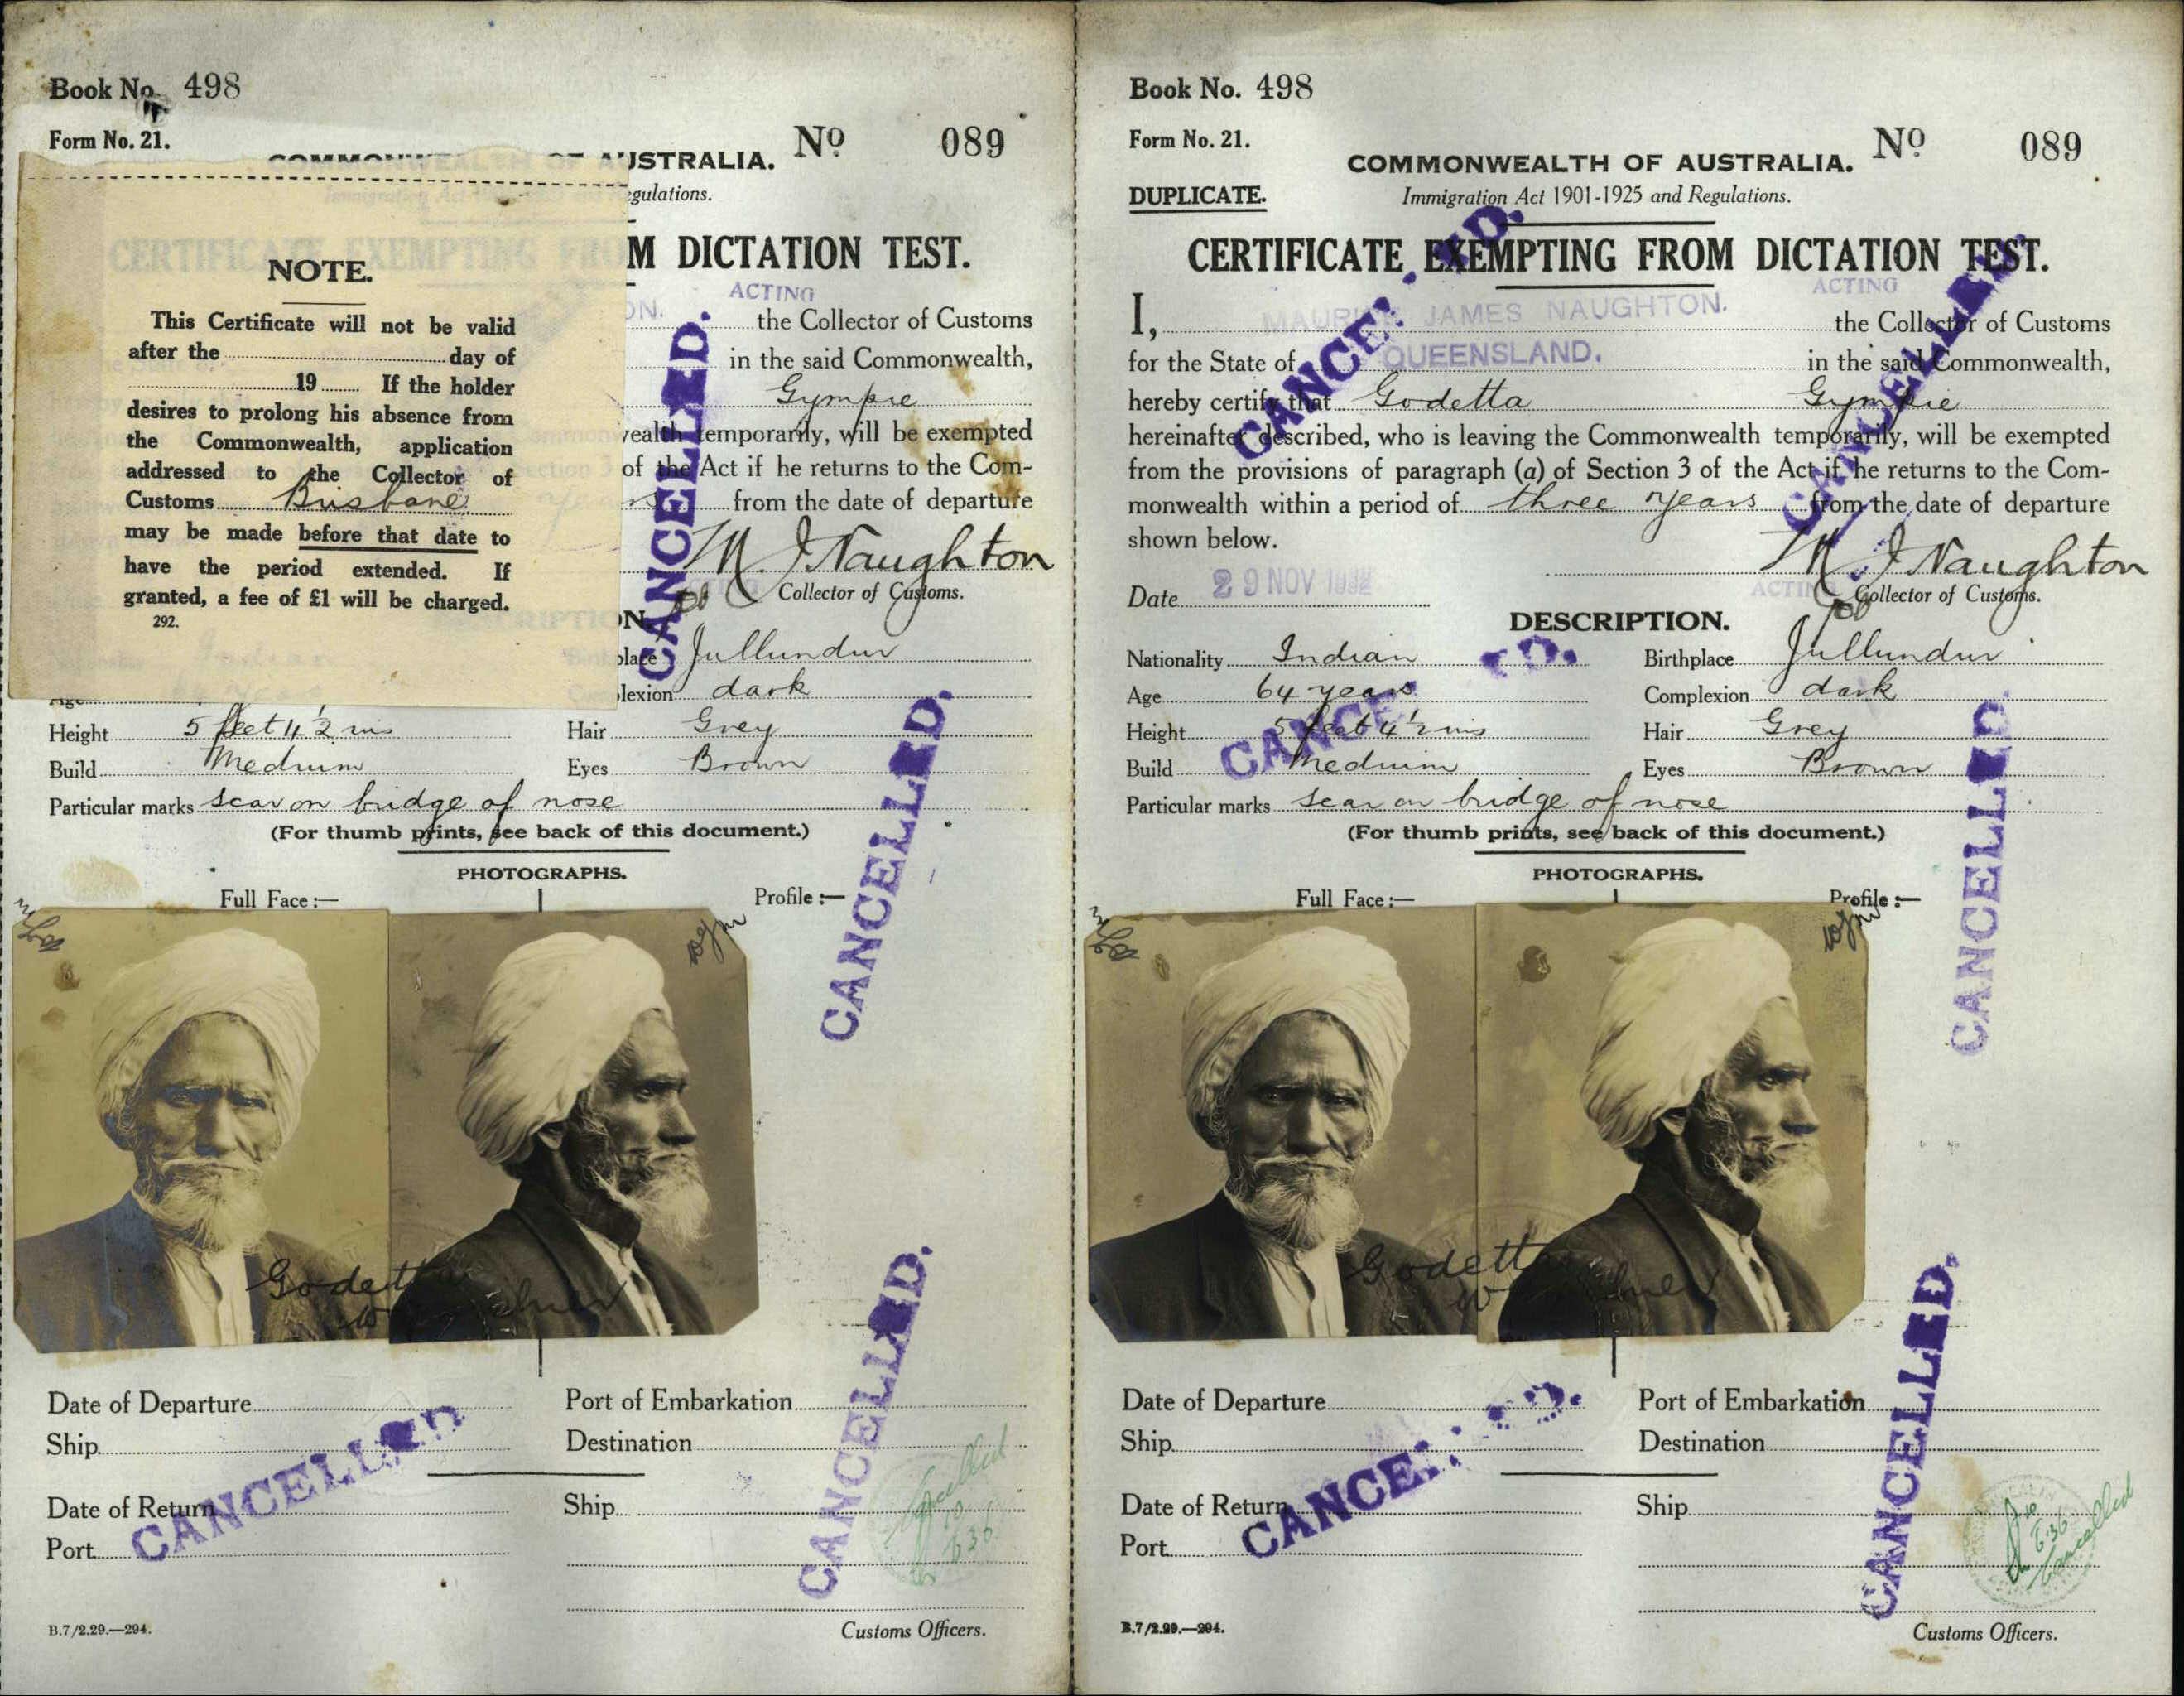 Book No. 498
Form No. 21.
COMMONWEALTH OF AUSTRALIA.
No 089
egulations.
M DICTATION TEST.
NOTE.
This Certificate will not be valid
after the day of
19 If the holder
desires to prolong his absence from
the Commonwealth, application
addressed to the Collector of
Customs Brisbane
may be made before that date to
have the period extended. If
granted, a fee of £1 will be charged.
292.
ON. ACTING
the Collector of Customs
in the said Commonwealth,
Gympie
wealth temporarily, will be exempted
of the Act if he returns to the Com-
years from the date of departure
M J Naughton
Collector of Customs.
CANCELLED.
N.
place Jullundur
Age
plexion dark
Height 5 feet 4½ ins Hair Grey
Build Medium Eyes Brown
Particular marks scar on bridge of nose
(For thumb prints, see back of this document.)
CANCELLED.
PHOTOGRAPHS.
Full Face:— Profile:—
Godetta
CANCELLED.
Date of Departure Port of Embarkation
Ship Destination
CANCELLED
Date of Return Ship
Port
Cancelled
B.7/2.29.—294. Customs Officers.
Book No. 498
Form No. 21.
No 089
COMMONWEALTH OF AUSTRALIA.
DUPLICATE.
Immigration Act 1901-1925 and Regulations.
CERTIFICATE EXEMPTING FROM DICTATION TEST.
ACTING
I, MAURICE JAMES NAUGHTON. the Collector of Customs
for the State of QUEENSLAND. in the said Commonwealth,
hereby certify that Godetta Gympie
hereinafter described, who is leaving the Commonwealth temporarily, will be exempted
from the provisions of paragraph (a) of Section 3 of the Act if he returns to the Com-
monwealth within a period of three years from the date of departure
shown below.
M J Naughton
Date 29 NOV 1932
ACTING Collector of Customs.
CANCELLED.
CANCELLED.
DESCRIPTION.
Nationality Indian Birthplace Jullundur
Age 64 years Complexion dark
Height 5 feet 4½ ins Hair Grey
Build Medium Eyes Brown
Particular marks scar on bridge of nose
(For thumb prints, see back of this document.)
CANCELLED.
CANCELLED.
PHOTOGRAPHS.
Full Face:— Profile:—
Godetta
Date of Departure Port of Embarkation
Ship Destination
CANCELLED.
CANCELLED.
Date of Return Ship
Port
Cancelled
B.7/2.29.—294. Customs Officers.